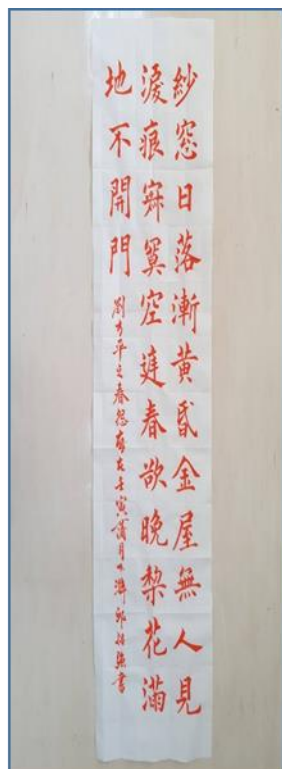 紗窓日落漸黄昏金屋無人見
淚痕寂寞空庭春欲晚梨花滿
地不開門
劉方平之春怨歲在壬寅蒲月下澣書